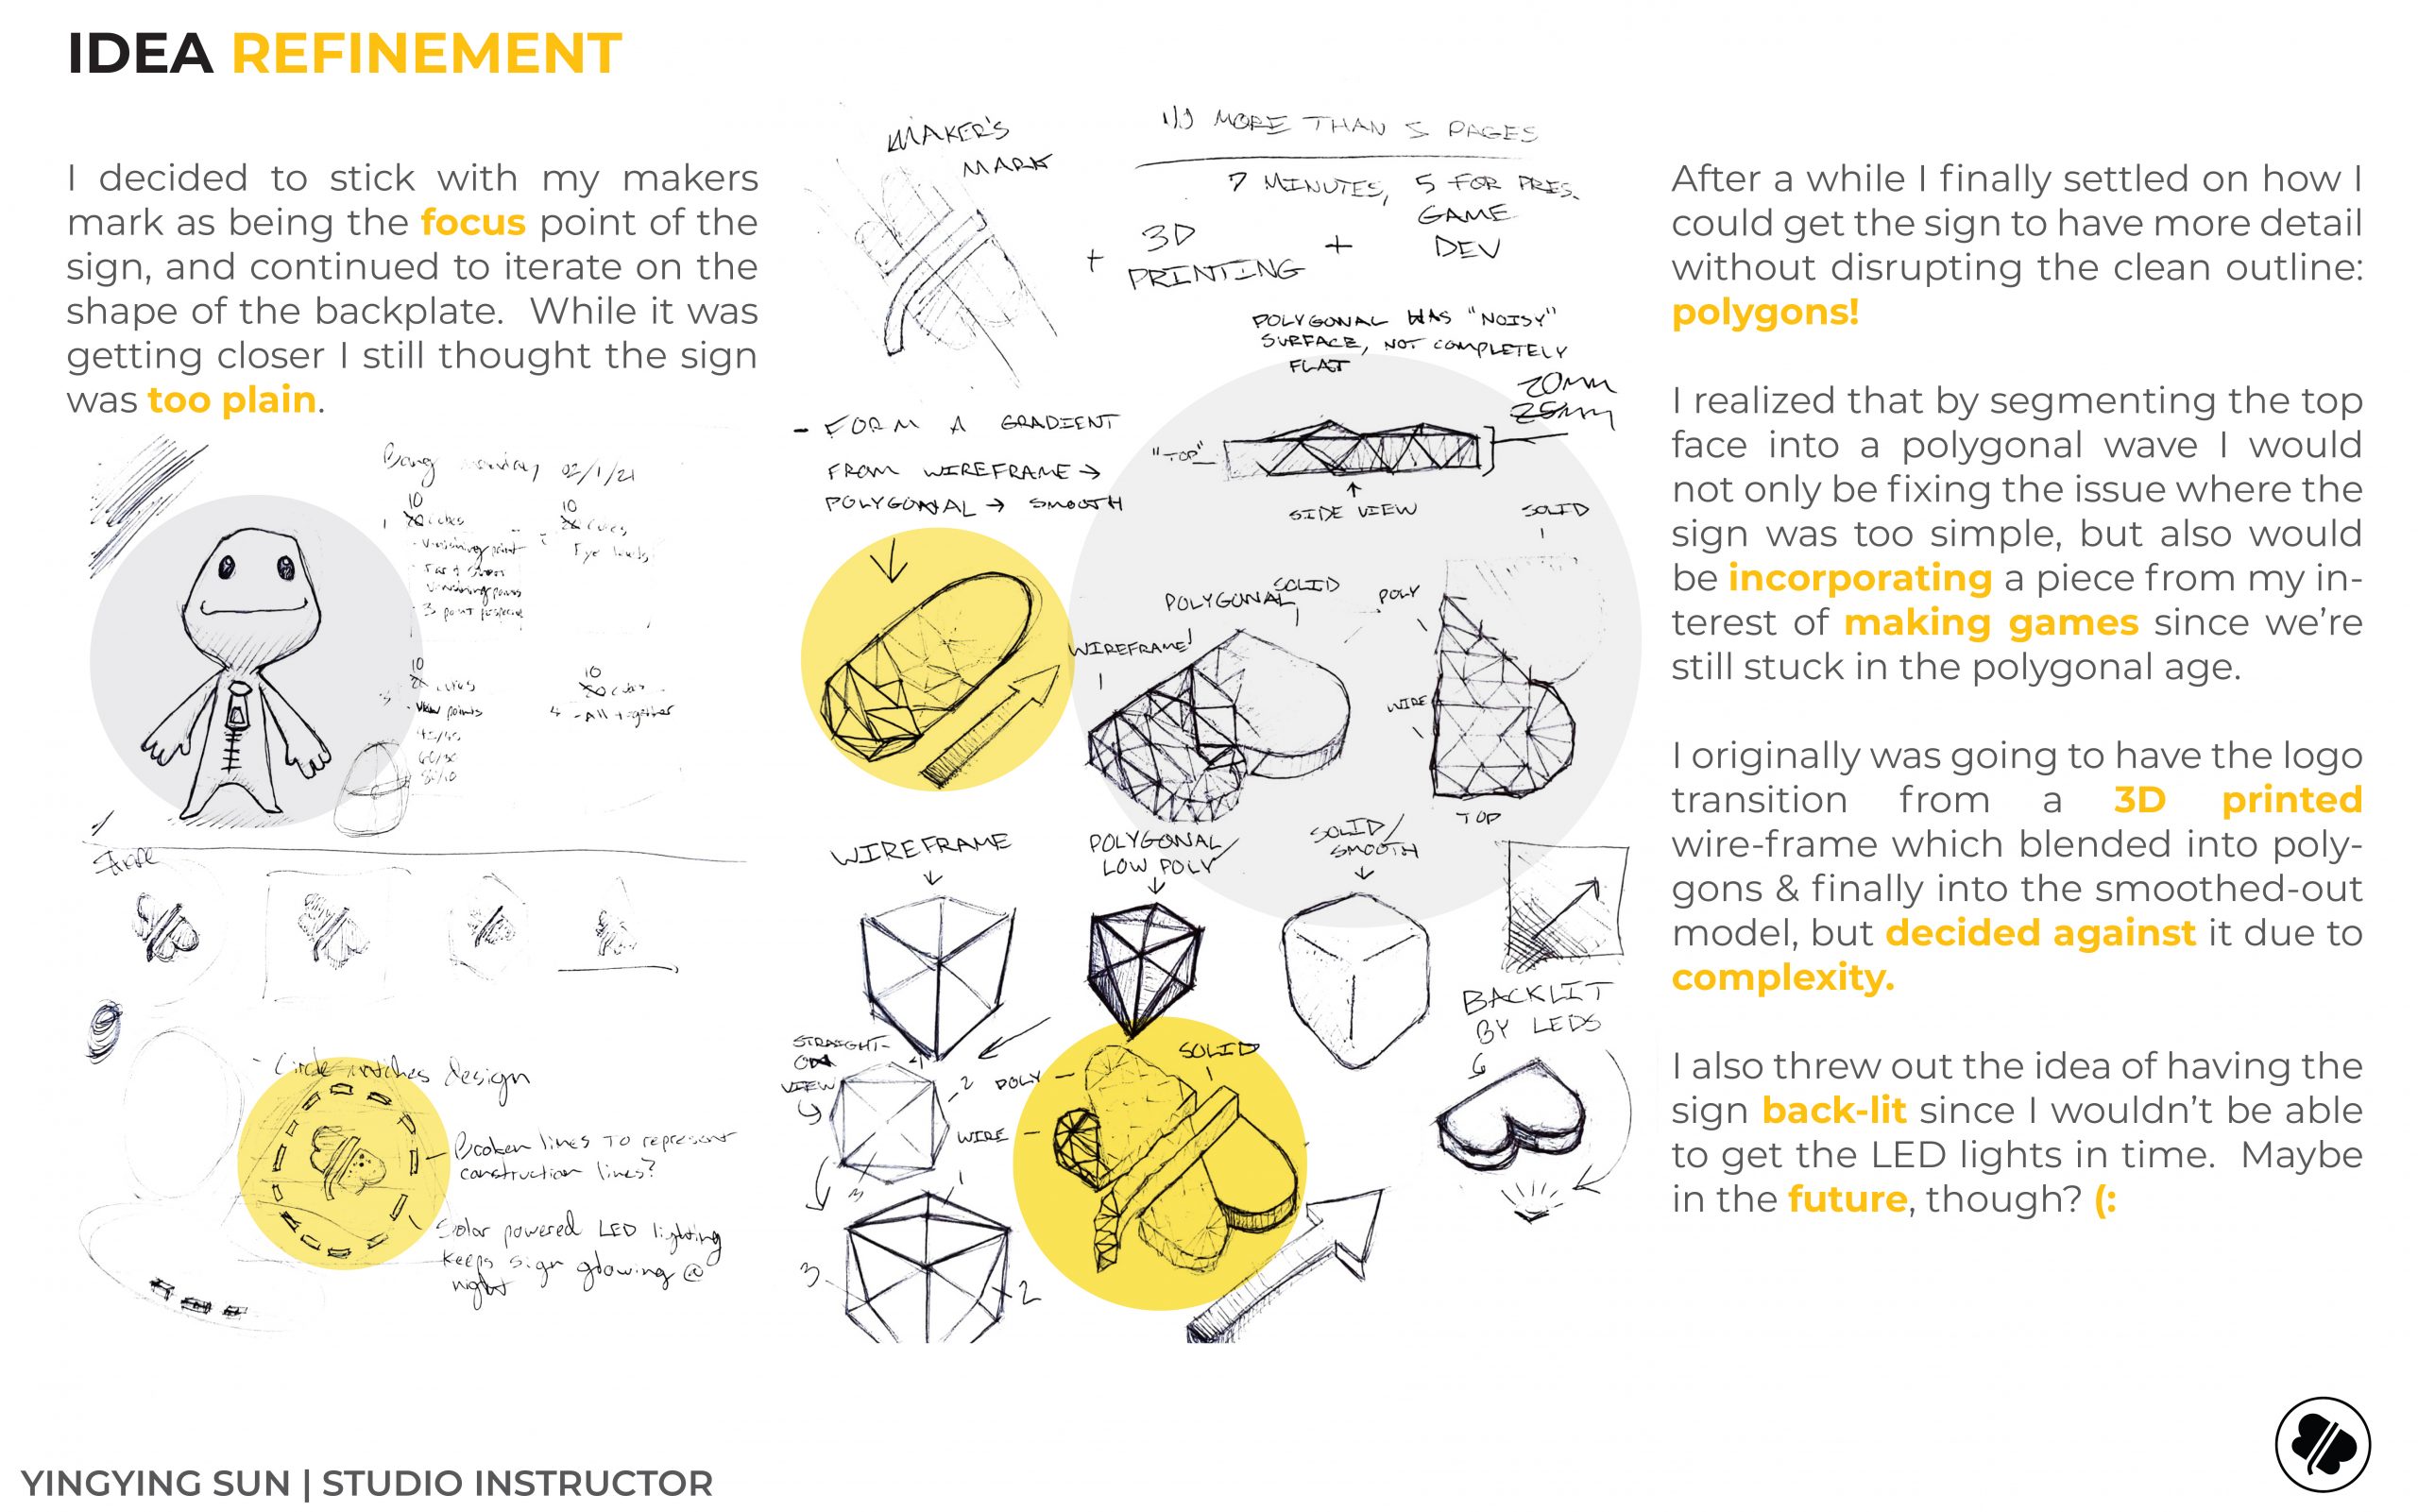 IDEA REFINEMENT
I decided to stick with my makers
mark as being the focus point of the
sign, and continued to iterate on the
shape of the backplate.  While it was
getting closer I still thought the sign
was too plain.
monday 02/1/21
10
10
- Vanishing point
Eye levels
10
10
- View points
4 - All together
Shape
- Circle matches design
Broken lines to represent
construction lines?
Solar powered LED lighting
keeps sign glowing @
night
MAKER'S
MARK
MORE THAN 5 PAGES
7 MINUTES, 5 FOR PRES.
+ 3D
PRINTING
+ GAME
DEV
POLYGONAL HAS "NOISY"
SURFACE, NOT COMPLETELY
FLAT
20MM
25MM
- FORM A GRADIENT
FROM WIREFRAME →
POLYGONAL → SMOOTH
"TOP"
SIDE VIEW
SOLID
POLYGONAL
SOLID
POLY
WIREFRAME
WIRE
TOP
WIREFRAME
POLYGONAL/
LOW POLY
SOLID/
SMOOTH
STRAIGHT-
ON
VIEW
2
3
1
POLY
SOLID
WIRE
BACKLIT
BY LEDS
3
2
After a while I finally settled on how I
could get the sign to have more detail
without disrupting the clean outline:
polygons!
I realized that by segmenting the top
face into a polygonal wave I would
not only be fixing the issue where the
sign was too simple, but also would
be incorporating a piece from my in-
terest of making games since we're
still stuck in the polygonal age.
I originally was going to have the logo
transition from a 3D printed
wire-frame which blended into poly-
gons & finally into the smoothed-out
model, but decided against it due to
complexity.
I also threw out the idea of having the
sign back-lit since I wouldn't be able
to get the LED lights in time.  Maybe
in the future, though? (:
YINGYING SUN | STUDIO INSTRUCTOR